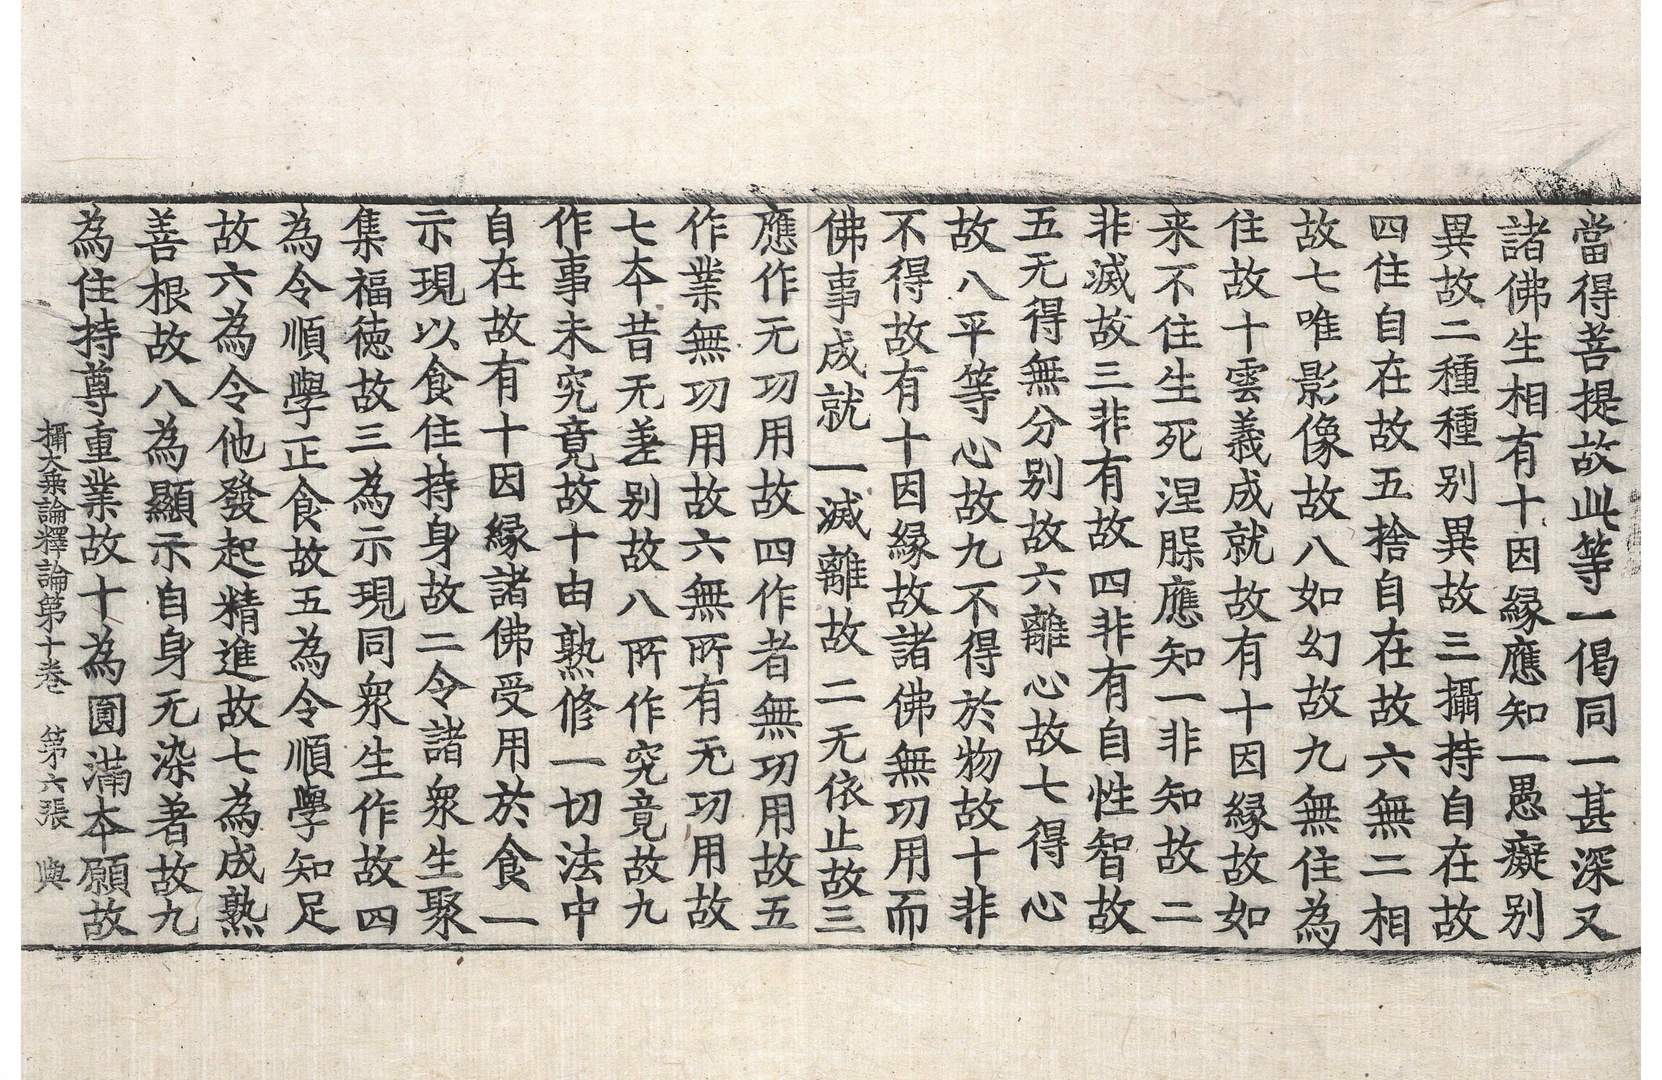 當得菩提故此等一偈同一甚深又
諸佛生相有十因縁應知一愚癡别
異故二種種别異故三攝持自在故
四住自在故五捨自在故六無二相
故七唯影像故八如幻故九無住為
住故十雲義成就故有十因縁故如
来不住生死涅槃應知一非知故二
非滅故三非有故四非有自性智故
五无得無分别故六離心故七得心
故八平等心故九不得於物故十非
不得故有十因縁故諸佛無功用而
佛事成就一滅離故二无依止故三
應作无功用故四作者無功用故五
作業無功用故六無所有无功用故
七本昔无差别故八所作究竟故九
作事未究竟故十由熟修一切法中
自在故有十因縁諸佛受用於食一
示現以食住持身故二令諸衆生聚
集福徳故三為示現同衆生作故四
為令順學正食故五為令順學知足
故六為令他發起精進故七為成熟
善根故八為顯示自身无染著故九
為住持尊重業故十為圓滿本願故
攝大乗論釋論第十卷　第六張　與